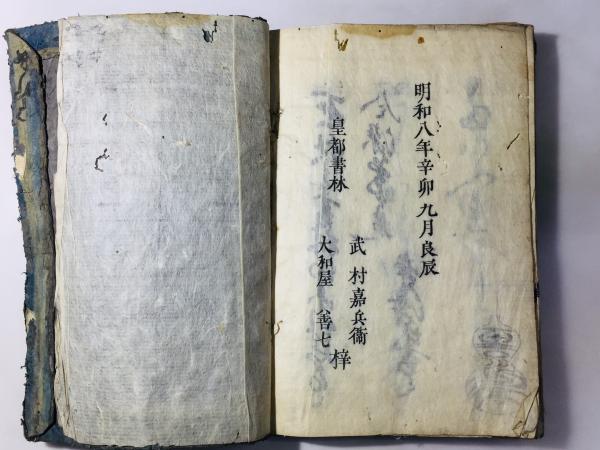 明和八年辛卯九月良辰
皇都書林
武村嘉兵衞
大和屋善七
梓